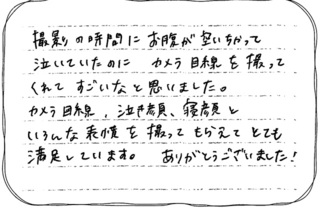 撮影の時間にお腹が空いちゃって
泣いていたのに カメラ目線を撮って
くれてすごいなと思いました。
カメラ目線、泣き顔、寝顔と
いろんな表情を撮ってもらえてとても
満足しています。 ありがとうございました!